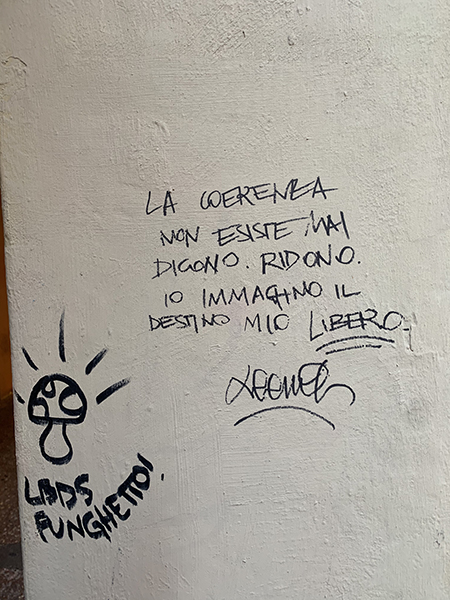 LA COERENZA
NON ESISTE MAI
DICONO. RIDONO.
IO IMMAGINO IL
DESTINO MIO LIBERO.
LBDS
FUNGHETTO!